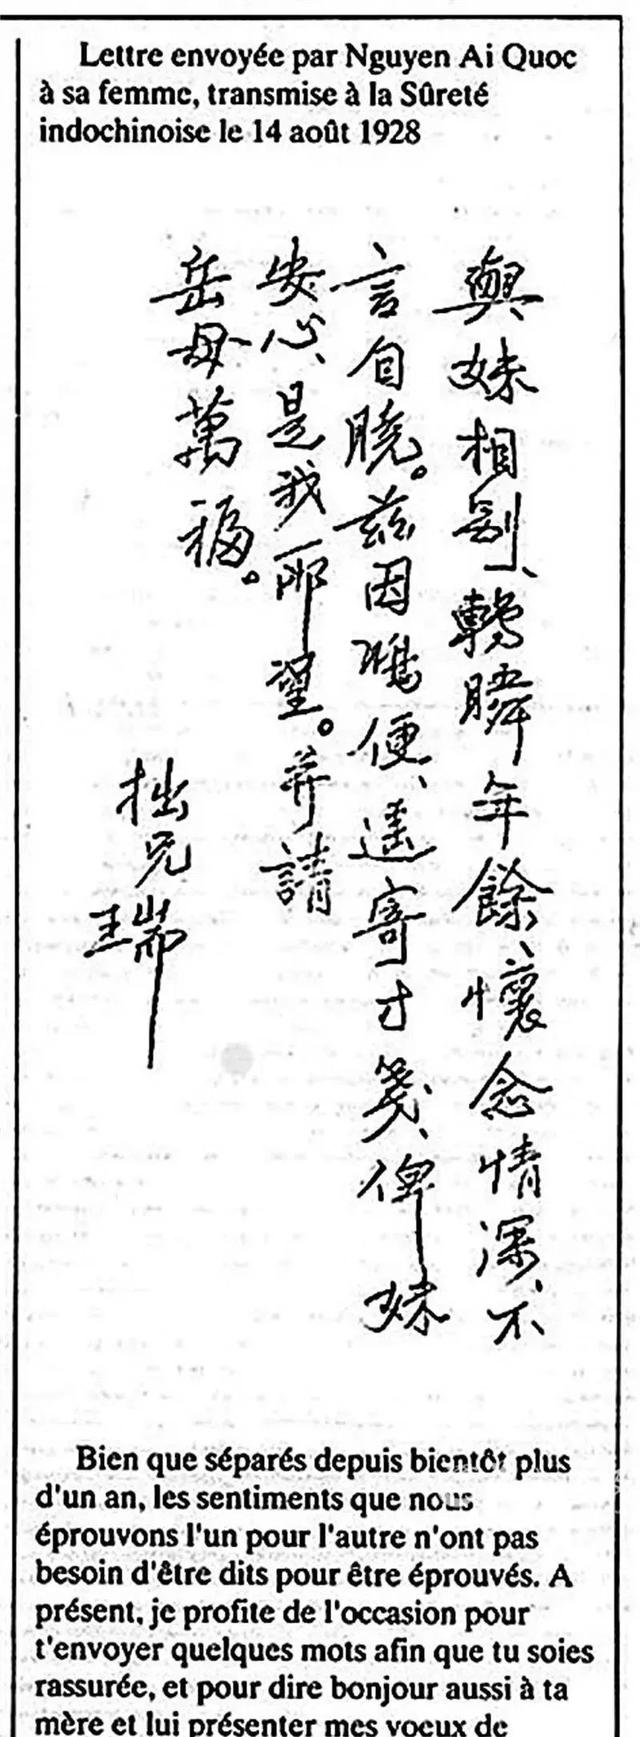 Lettre envoyée par Nguyen Ai Quoc
à sa femme, transmise à la Sûreté
indochinoise le 14 août 1928
與妹相别、轉瞬年餘、懷念情深、不
言自曉。茲因鴻便、遥寄寸箋、俾妹
安心、是我所望。并請
岳母萬福。
拙兄
瑞
Bien que séparés depuis bientôt plus
d'un an, les sentiments que nous
éprouvons l'un pour l'autre n'ont pas
besoin d'être dits pour être éprouvés. A
présent, je profite de l'occasion pour
t'envoyer quelques mots afin que tu soies
rassurée, et pour dire bonjour aussi à ta
mère et lui présenter mes voeux de